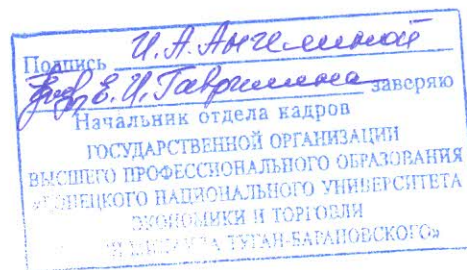 Подпись И. А. Ангелиной
Е. И. заверяю
Начальник отдела кадров
ГОСУДАРСТВЕННОЙ ОРГАНИЗАЦИИ
ВЫСШЕГО ПРОФЕССИОНАЛЬНОГО ОБРАЗОВАНИЯ
«ДОНЕЦКОГО НАЦИОНАЛЬНОГО УНИВЕРСИТЕТА
ЭКОНОМИКИ И ТОРГОВЛИ
ТУГАН-БАРАНОВСКОГО»